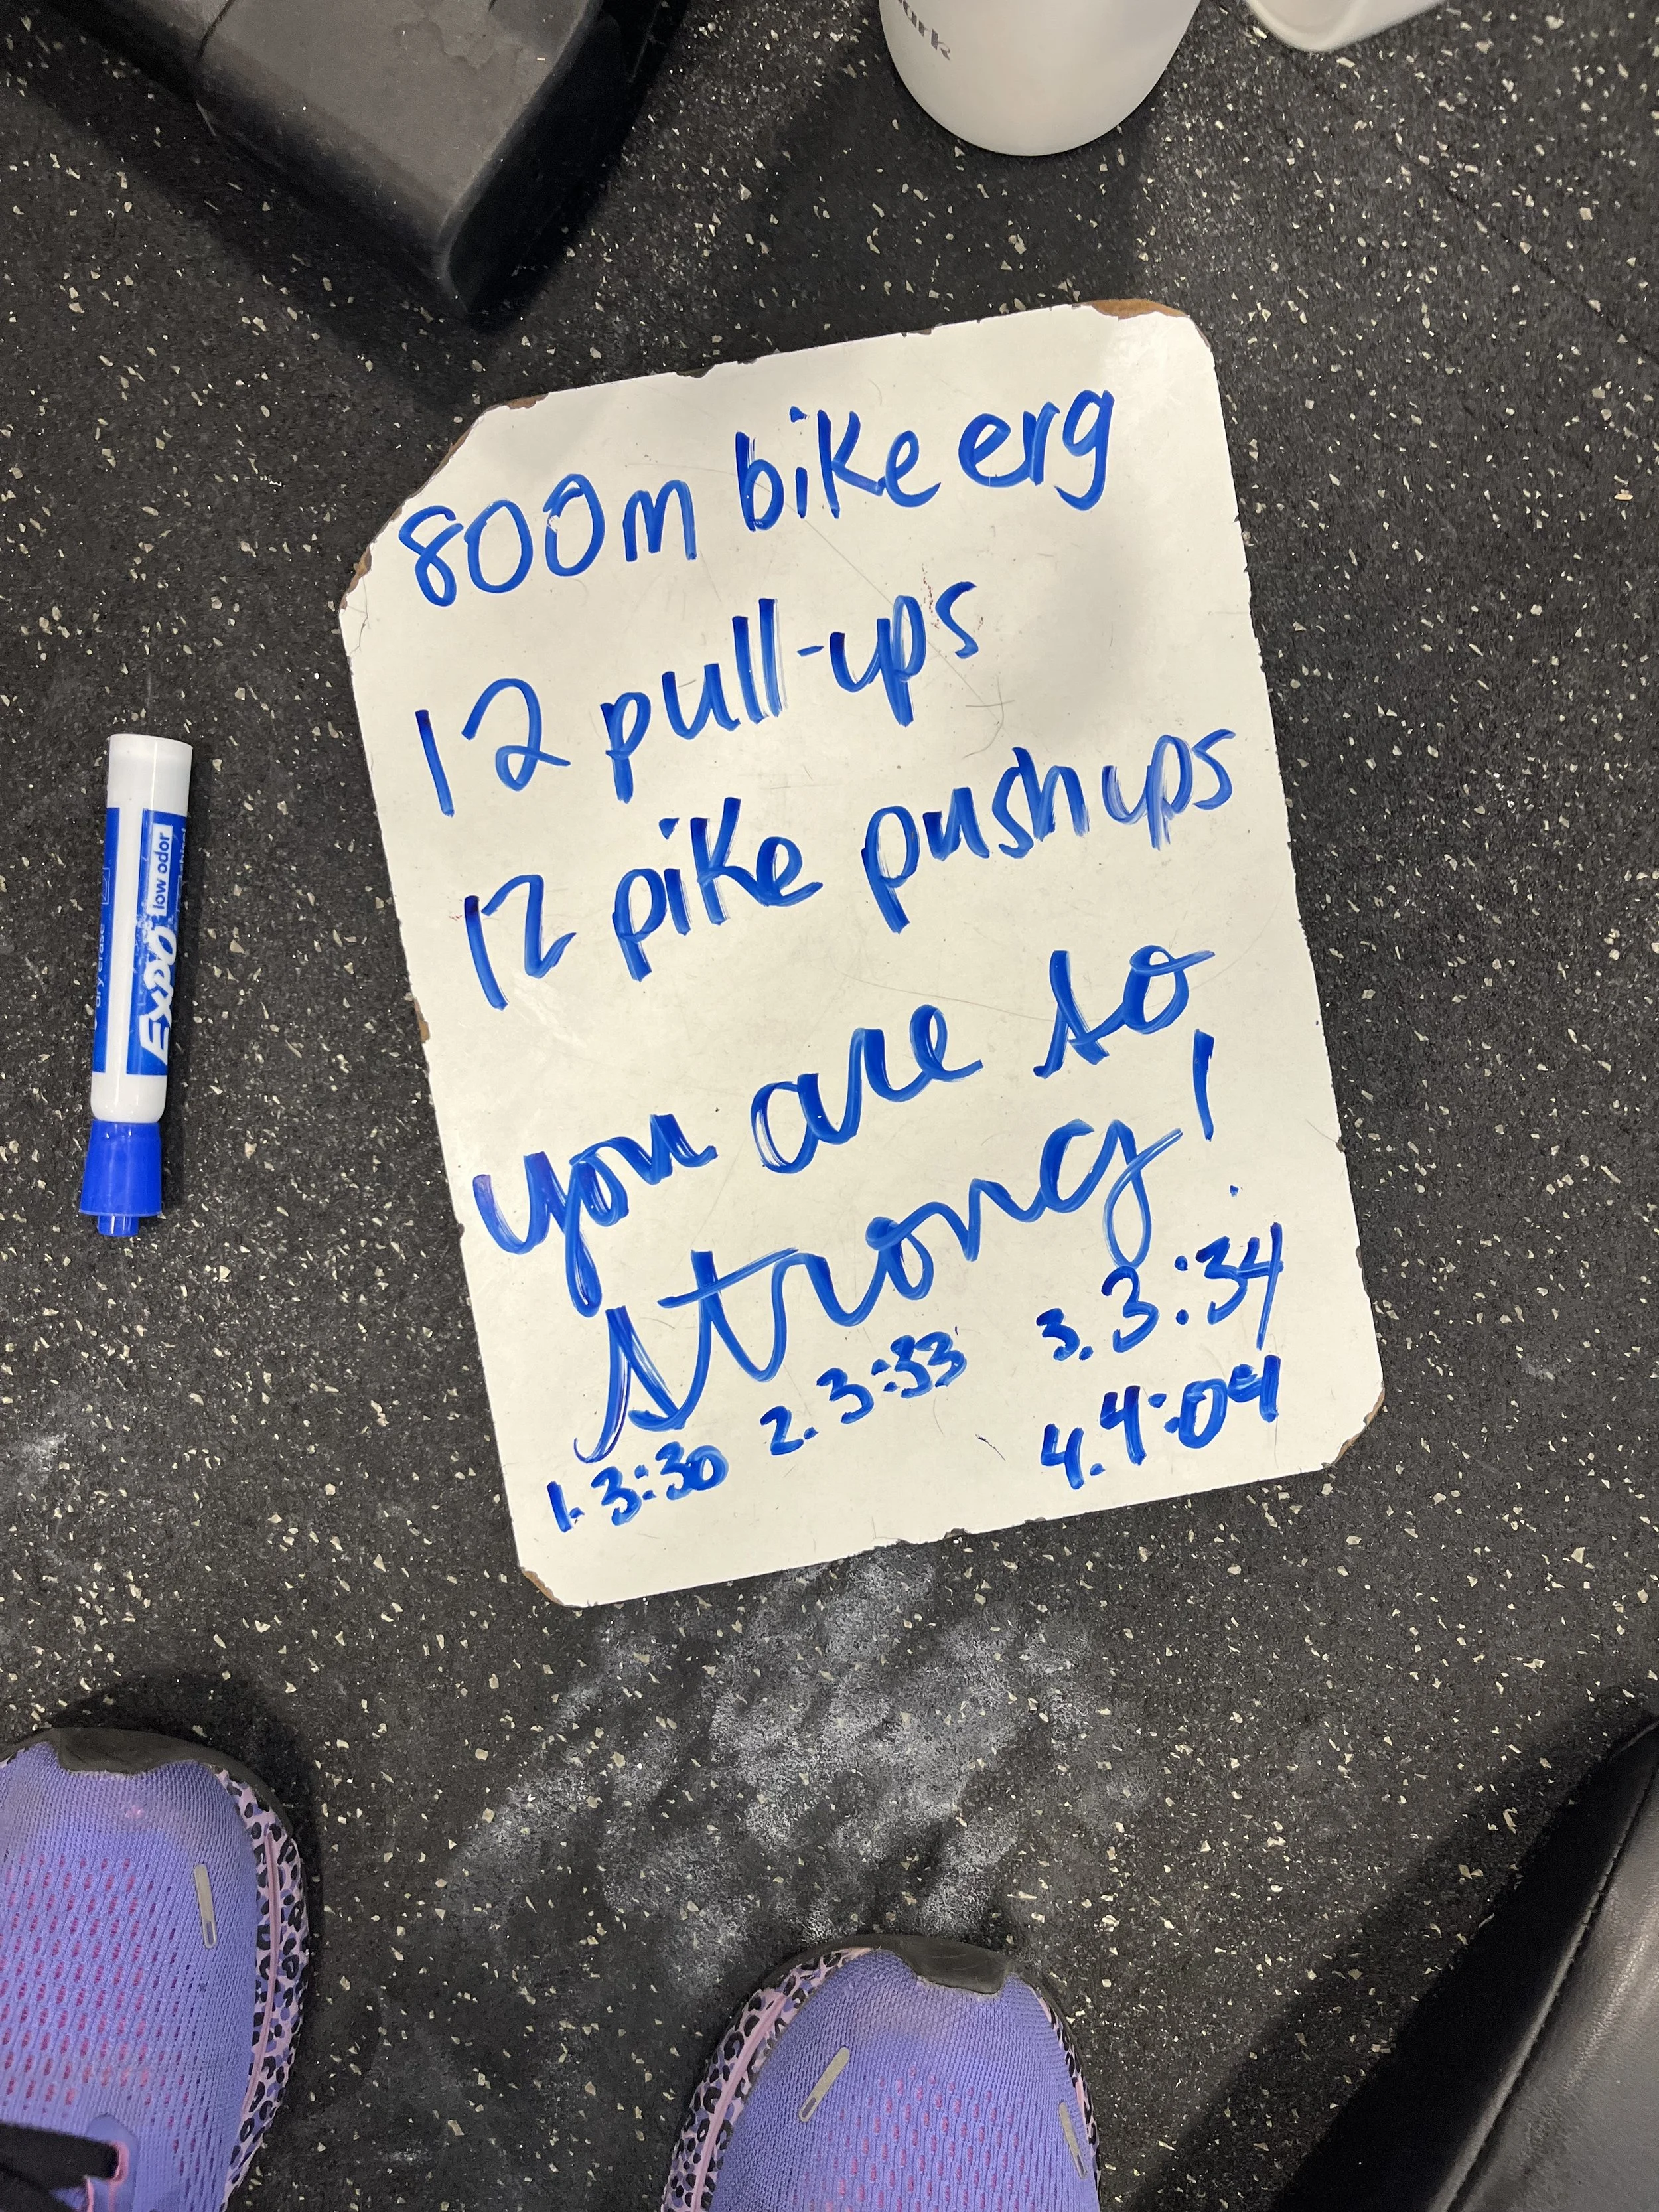 800m bike erg
12 pull-ups
12 pike pushups
you are so
strong!
1. 3:30 2. 3:33 3. 3:34
4. 4:09
EXPO low odor
dry erase